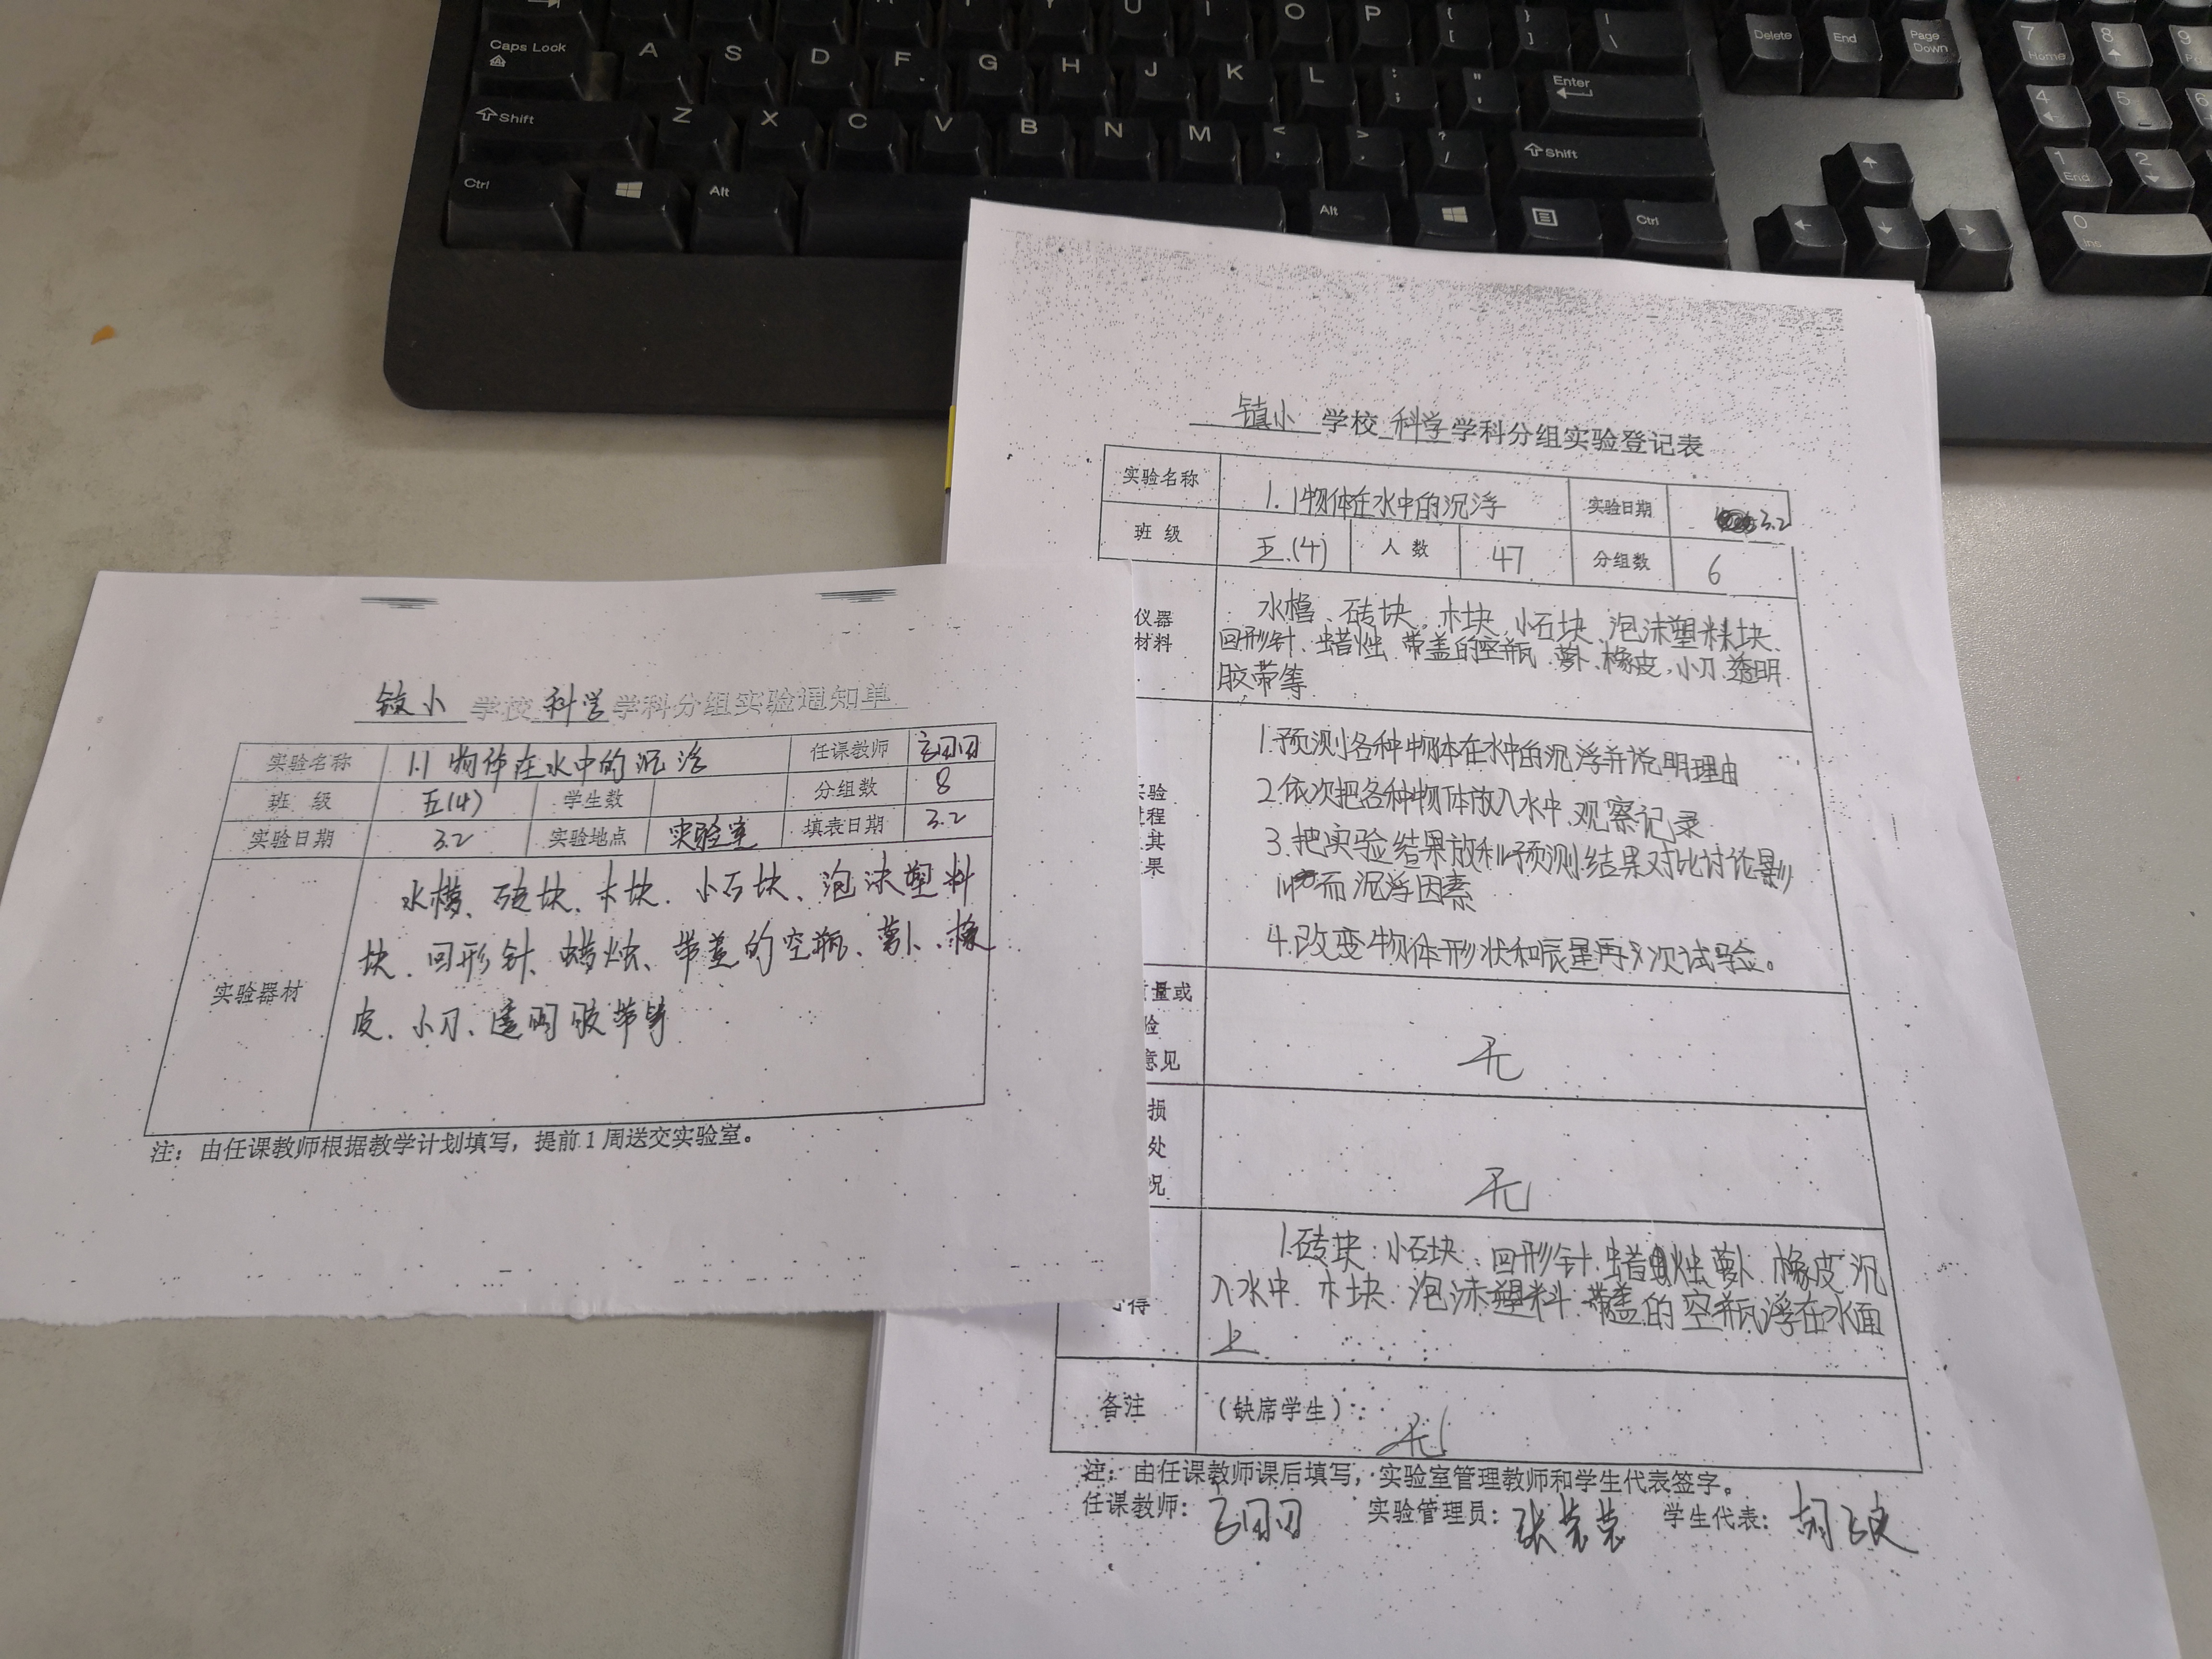 Caps Lock
A S D F G H J K L : ; " '
Enter
Shift
Z X C V B N M < , > . ? /
Shift
Ctrl
Alt
Alt
Ctrl
U I O P { [ } ] | \
Delete End Page Down
7 Home 8 9
4 5 6
1 End 2
0 Ins
镇小 学校 科学 学科分组实验通知单
实验名称 1.1 物体在水中的沉浮 任课教师
班 级 五(4) 学生数 分组数 8
实验日期 3.2 实验地点 实验室 填表日期 3.2
实验器材
水槽、砖块、木块、小石块、泡沫塑料
块、回形针、蜡烛、带盖的空瓶、萝卜、橡
皮、小刀、透明胶带等
注：由任课教师根据教学计划填写，提前1周送交实验室。
镇小 学校 科学 学科分组实验登记表
实验名称 1.1物体在水中的沉浮 实验日期 3.2
班 级 五.(4) 人 数 47 分组数 6
仪器
材料
水槽、砖块、木块、小石块、泡沫塑料块、
回形针、蜡烛、带盖的空瓶、萝卜、橡皮、小刀、透明
胶带等
实验
程
其
果
1.预测各种物体在水中的沉浮并说明理由
2.依次把各种物体放入水中、观察记录
3.把实验结果放和预测结果对比讨论影
响而沉浮因素
4.改变物体形状和 再次试验。
量或
验
意见
无
损
处
况
无
得
1.砖块、小石块、回形针、蜡烛萝卜、橡皮沉
入水中、木块、泡沫塑料、带盖的空瓶浮在水面
上
备注 （缺席学生）： 无
注：由任课教师课后填写，实验室管理教师和学生代表签字。
任课教师： 实验管理员： 学生代表：